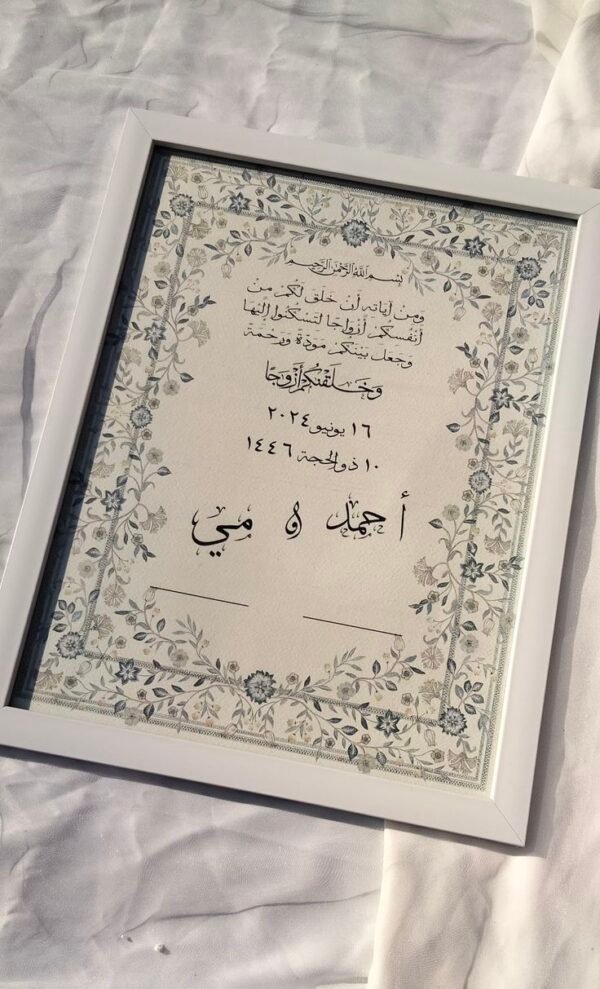 بِسْمِ اللَّهِ الرَّحْمَنِ الرَّحِيمِ
وَمِنْ آيَاتِهِ أَنْ خَلَقَ لَكُمْ مِنْ
أَنْفُسِكُمْ أَزْوَاجًا لِتَسْكُنُوا إِلَيْهَا
وَجَعَلَ بَيْنَكُمْ مَوَدَّةً وَرَحْمَةً
وَخَلَقْنَكُمْ أَزْوَجًا
١٦ يونيو ٢٠٢٤
١٠ ذو الحجة ١٤٤٦
أحمد و مي